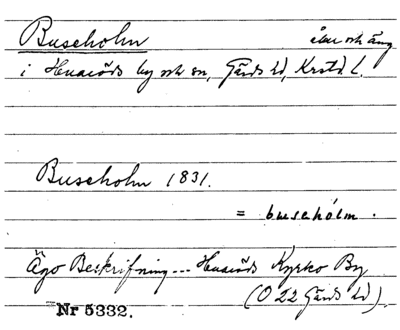 Buseholm åker och äng
i Huaröds by och sn, Gärds hd, Krstd. L.
Buseholm 1831.
= busehólm.
Ägo Beskrifning... Huaröds Kyrko By
(O 22 Gärds hd).
Nr 5332.